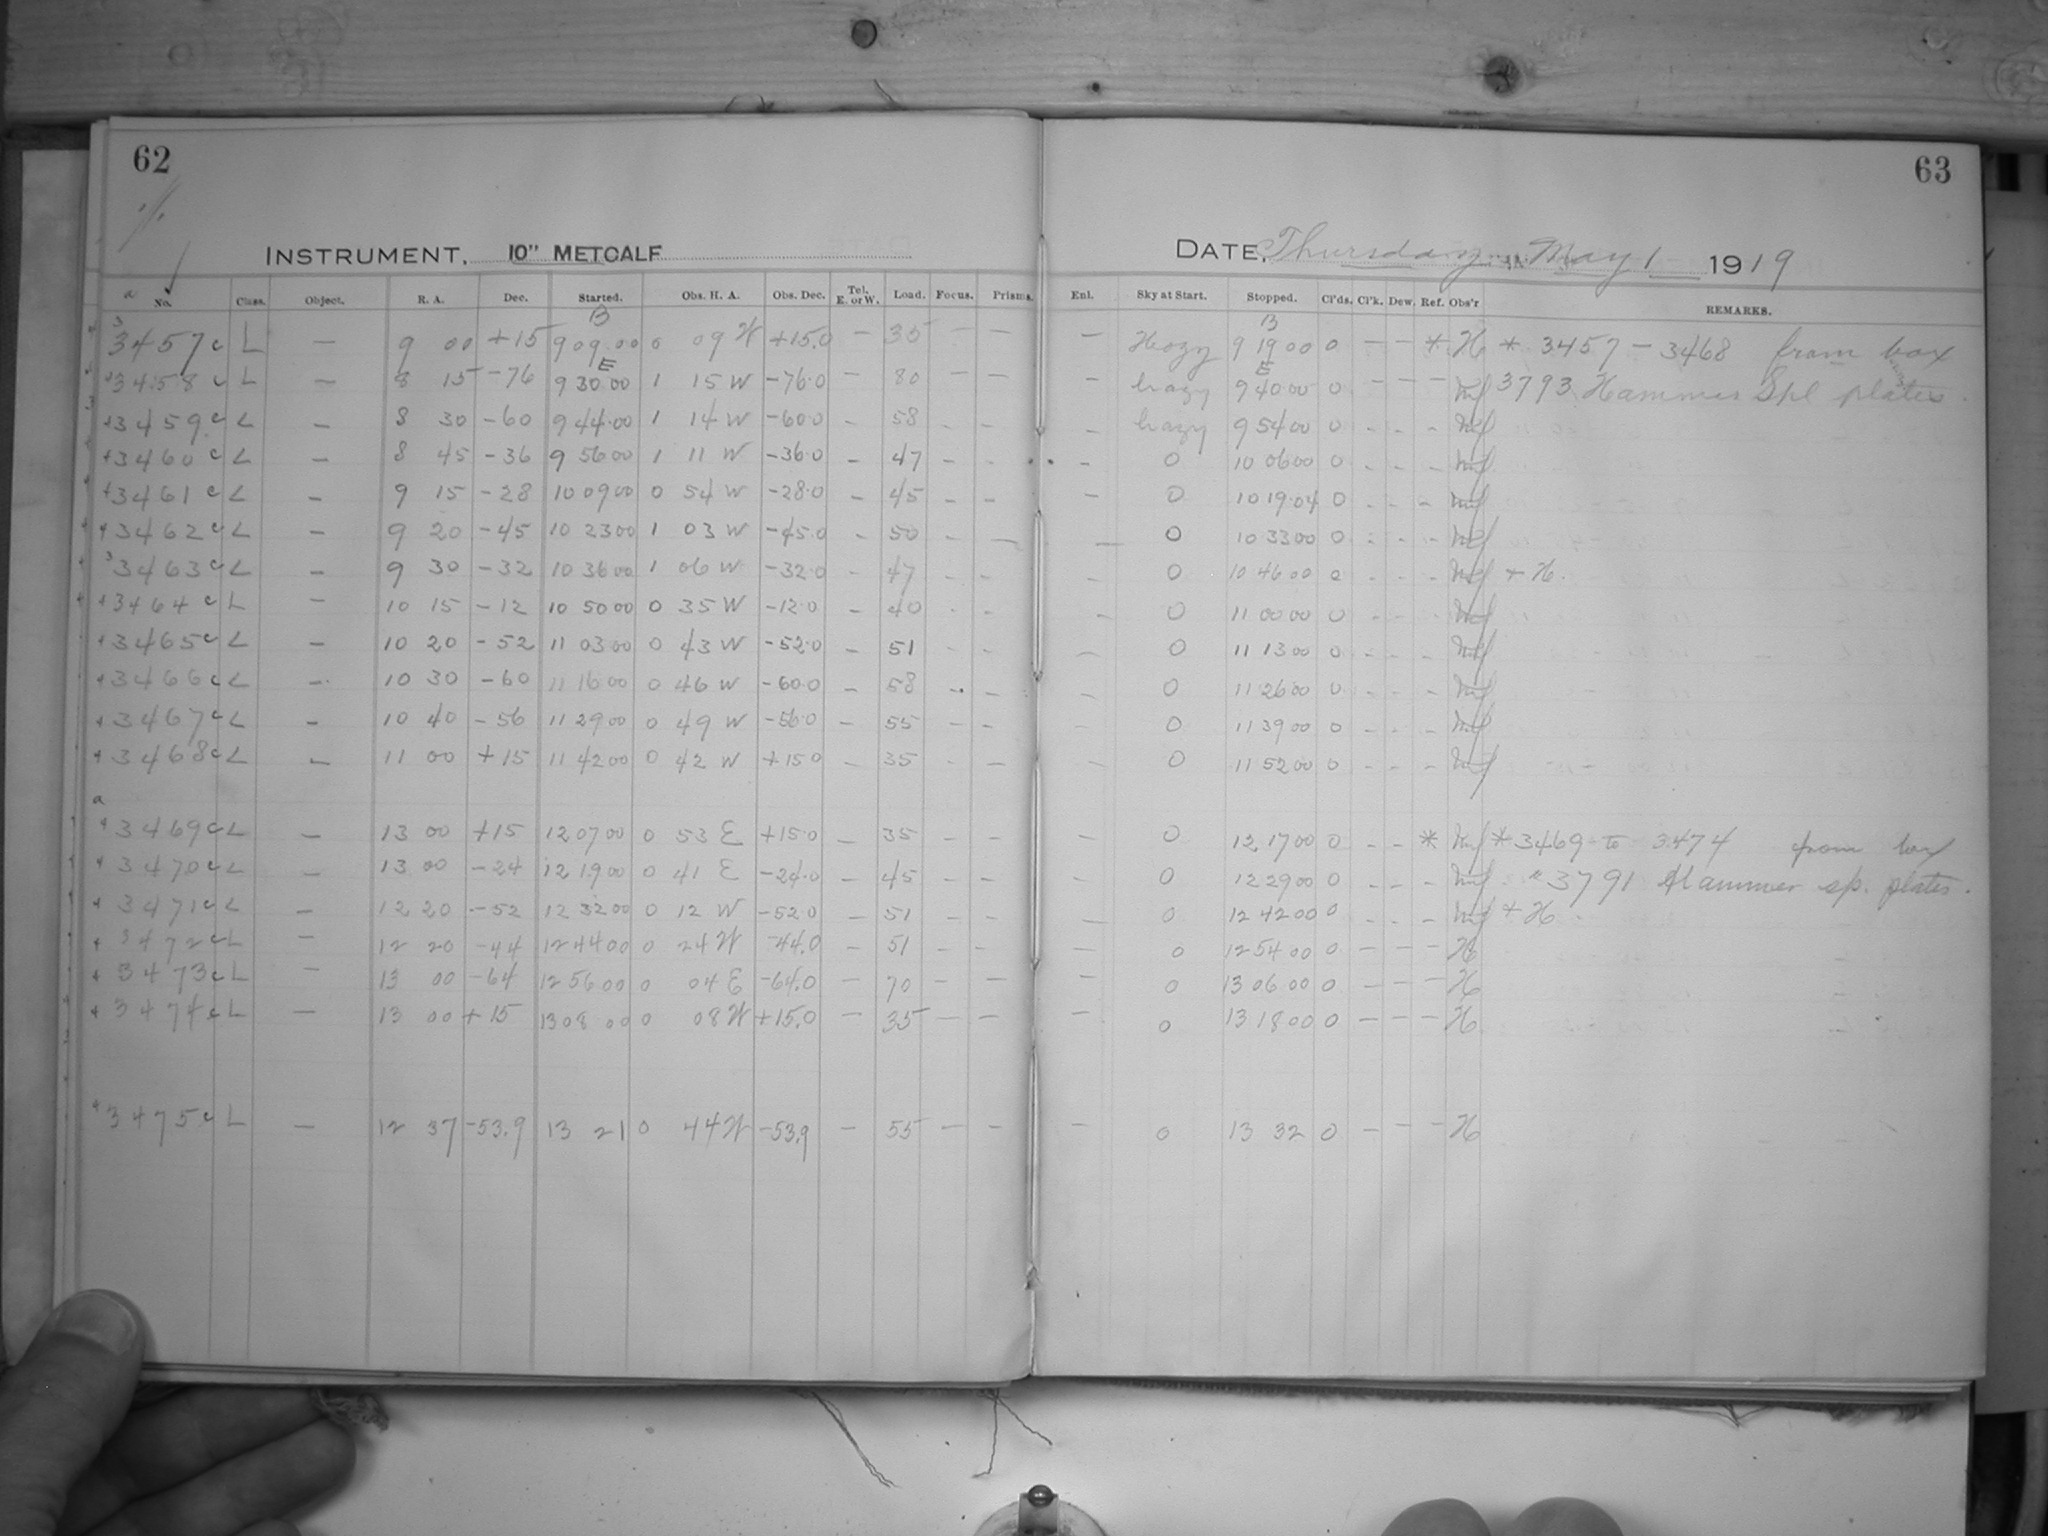 62
63
INSTRUMENT, 10" METCALF
DATE, Thursday May 1 1919
No. Class. Object. R. A. Dec. Started. Obs. H. A. Obs. Dec. Tel. E. or W. Load. Focus. Prisms. Enl. Sky at Start. Stopped. Cl'ds. Cl'k. Dew. Ref. Obs'r REMARKS.
B B
3457 c L — 9 00 +15 9 09 00 0 09 W +15.0 — 35 — — — Hazy 9 19 00 0 — — * H * 3457 — 3468 from box
E E
3458 c L — 8 15 -76 9 30 00 1 15 W -76.0 — 80 — — — hazy 9 40 00 0 - - - 3793 Hammer Spl plates.
3459 c L — 8 30 -60 9 44 00 1 14 W -60.0 - 58 - - - hazy 9 54 00 0 - - -
3460 c L — 8 45 -36 9 56 00 1 11 W -36.0 - 47 - - - 0 10 06 00 0 - - -
3461 c L - 9 15 -28 10 09 00 0 54 W -28.0 - 45 - - - 0 10 19 04 0 - - -
3462 c L - 9 20 -45 10 23 00 1 03 W -45.0 - 50 - - - 0 10 33 00 0 - - -
3463 c L - 9 30 -32 10 36 00 1 06 W -32.0 - 47 - - 0 10 46 00 0 - - - + H.
3464 c L - 10 15 -12 10 50 00 0 35 W -12.0 - 40 - - - 0 11 00 00 0 - - -
3465 c L - 10 20 -52 11 03 00 0 43 W -52.0 - 51 - - - 0 11 13 00 0 - - -
3466 c L - 10 30 -60 11 16 00 0 46 W -60.0 - 58 - - - 0 11 26 00 0 - - -
3467 c L - 10 40 -56 11 29 00 0 49 W -56.0 - 55 - - - 0 11 39 00 0 - - -
3468 c L - 11 00 +15 11 42 00 0 42 W +15.0 - 35 - - - 0 11 52 00 0 - - -
3469 c L - 13 00 +15 12 07 00 0 53 E +15.0 - 35 - - - 0 12 17 00 0 - - * * 3469 to 3474 from box
3470 c L - 13 00 -24 12 19 00 0 41 E -24.0 - 45 - - - 0 12 29 00 0 - - - 3791 Hammer sp. plates.
3471 c L - 12 20 -52 12 32 00 0 12 W -52.0 - 51 - - - 0 12 42 00 0 - - - + H
3472 c L - 12 20 -44 12 44 00 0 24 W -44.0 - 51 - - - 0 12 54 00 0 - - - H
3473 c L - 13 00 -64 12 56 00 0 04 E -64.0 - 70 - - - 0 13 06 00 0 - - - H
3474 c L — 13 00 +15 13 08 00 0 08 W +15.0 — 35 — — — 0 13 18 00 0 — — — H
3475 c L — 12 37 -53.9 13 21 0 44 W -53.9 — 55 — — — 0 13 32 0 — — — H